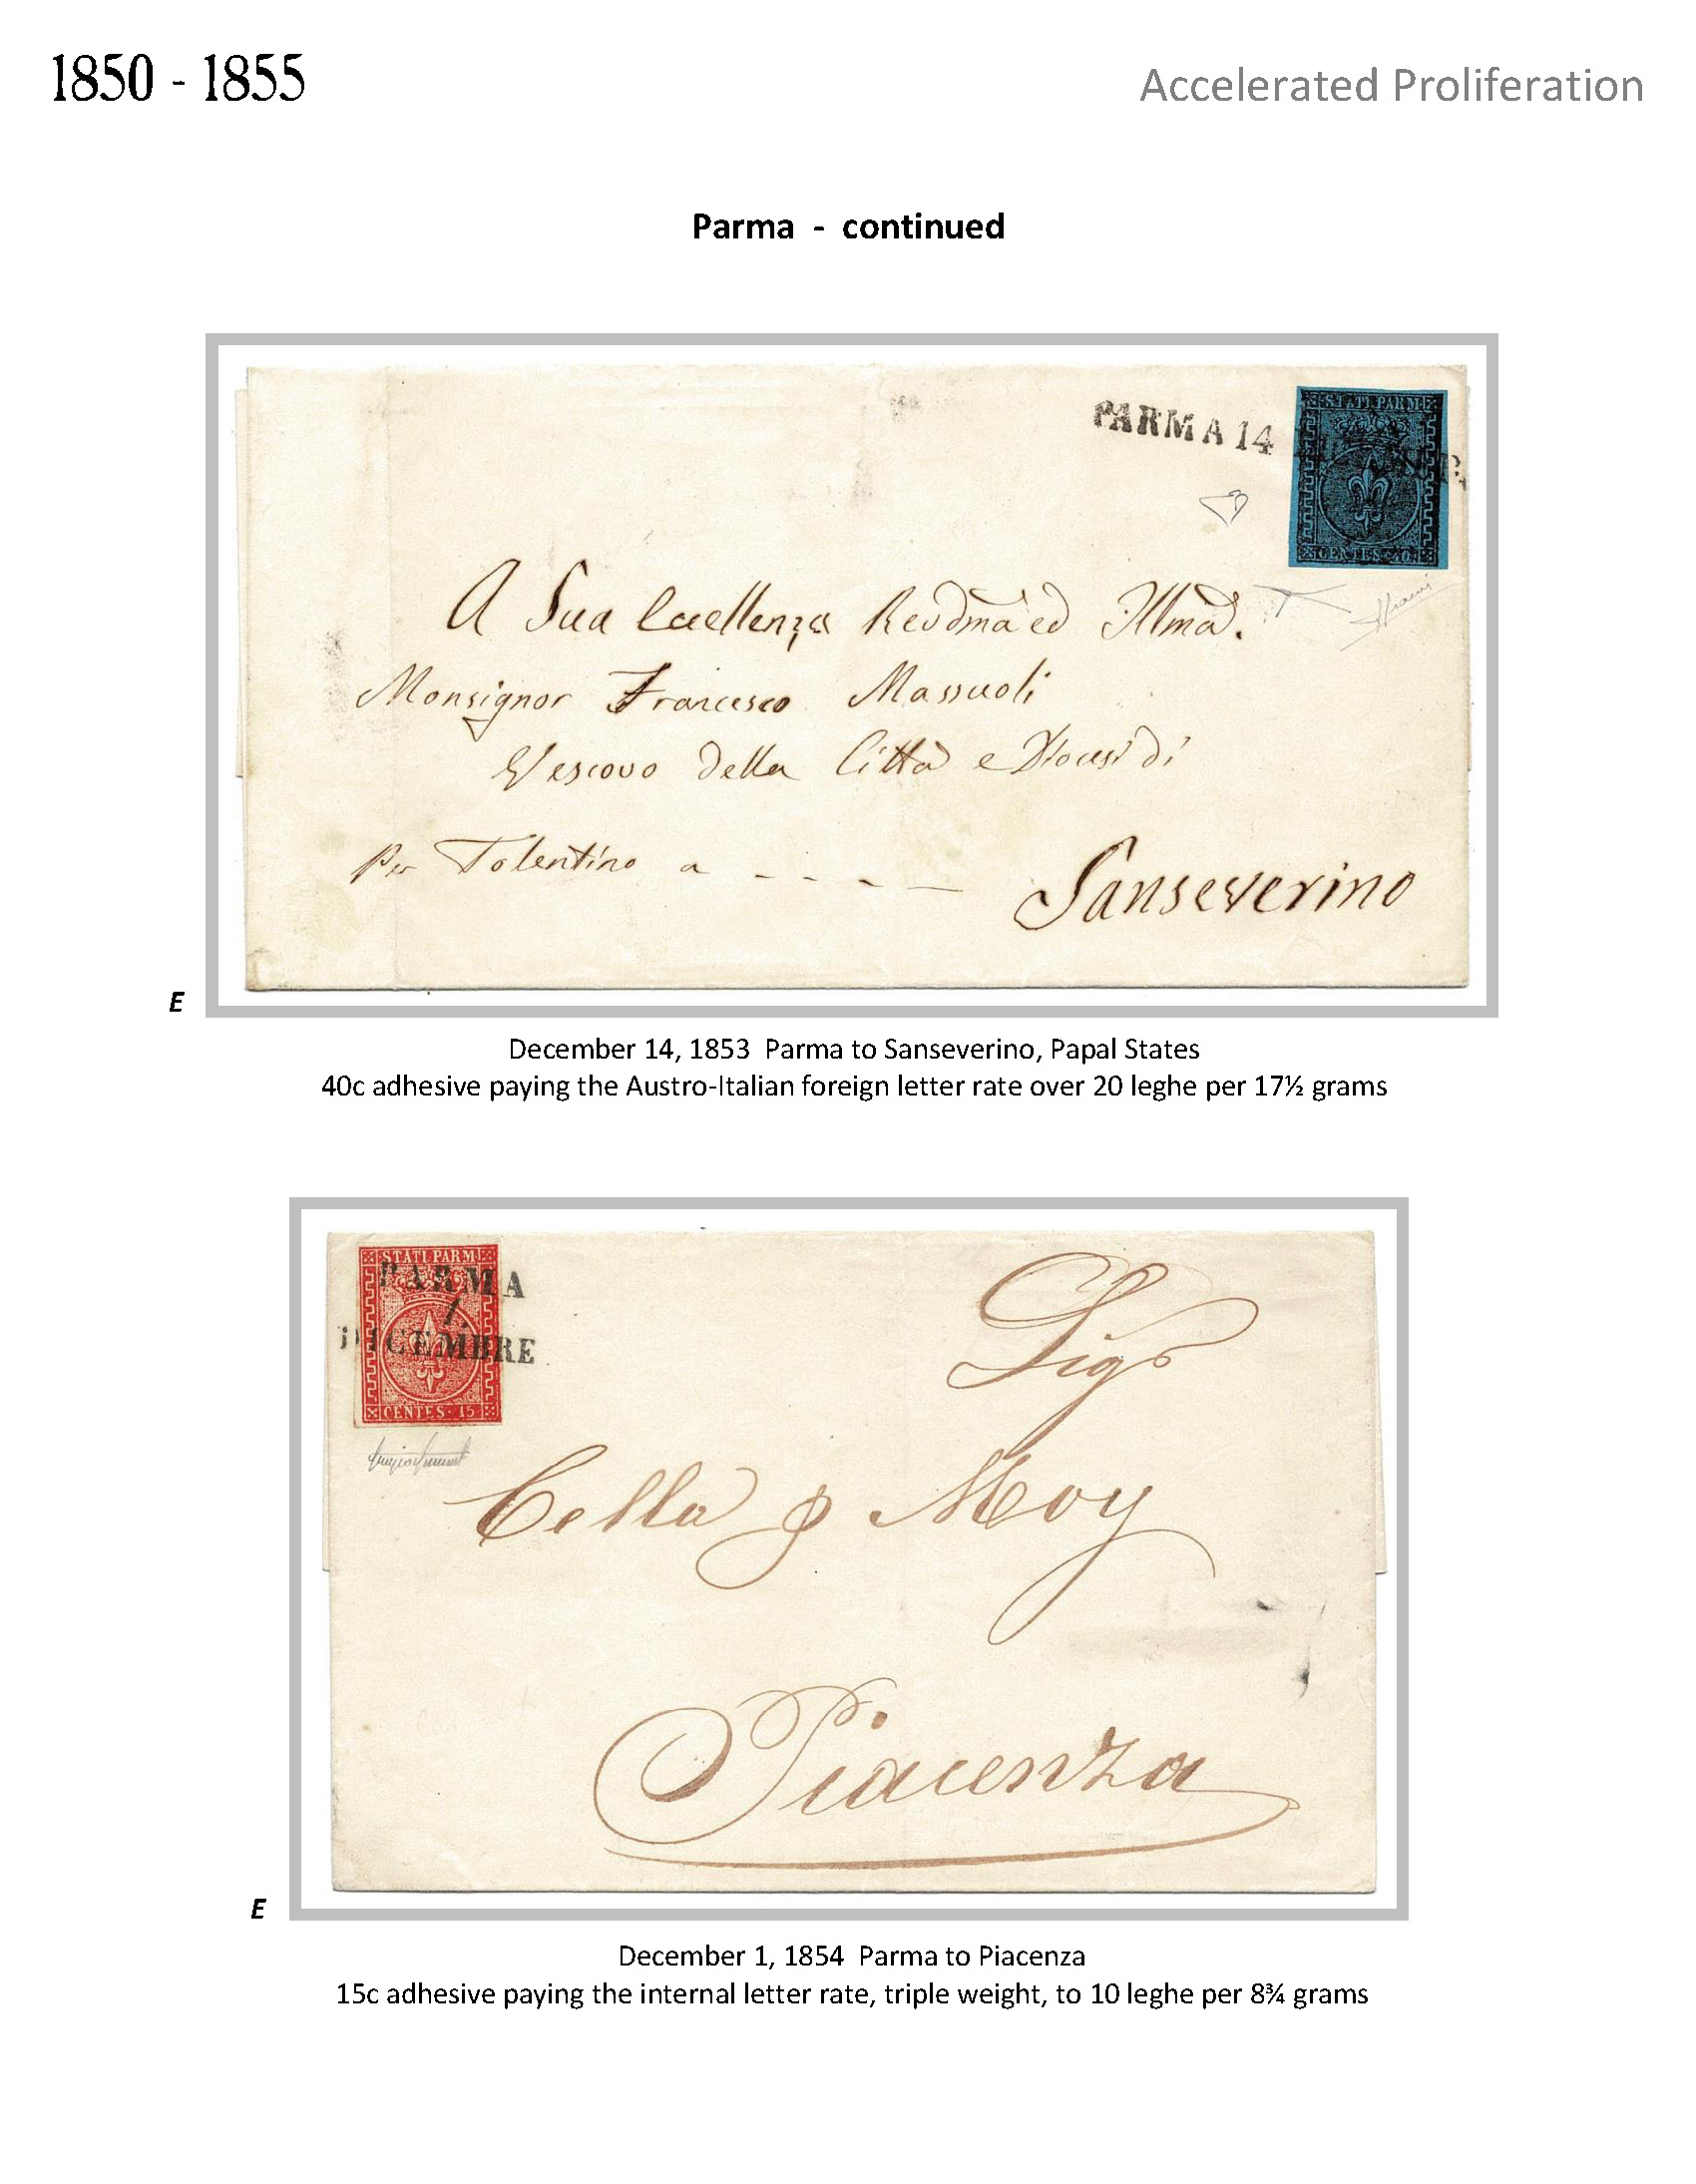 1850 - 1855
Accelerated Proliferation
Parma - continued
PARMA 14
STATI PARM
CENTES. 40
A Sua Eccellenza Revdma ed Illma.
Monsignor Francesco
Vescovo della Città e Diocesi di
Per Tolentino a - - - -
Sanseverino
E
December 14, 1853 Parma to Sanseverino, Papal States
40c adhesive paying the Austro-Italian foreign letter rate over 20 leghe per 17½ grams
STATI PARM
PARMA
1.
DICEMBRE
CENTES. 15
Sigr
Cella & Moy
Piacenza
E
December 1, 1854 Parma to Piacenza
15c adhesive paying the internal letter rate, triple weight, to 10 leghe per 8¾ grams